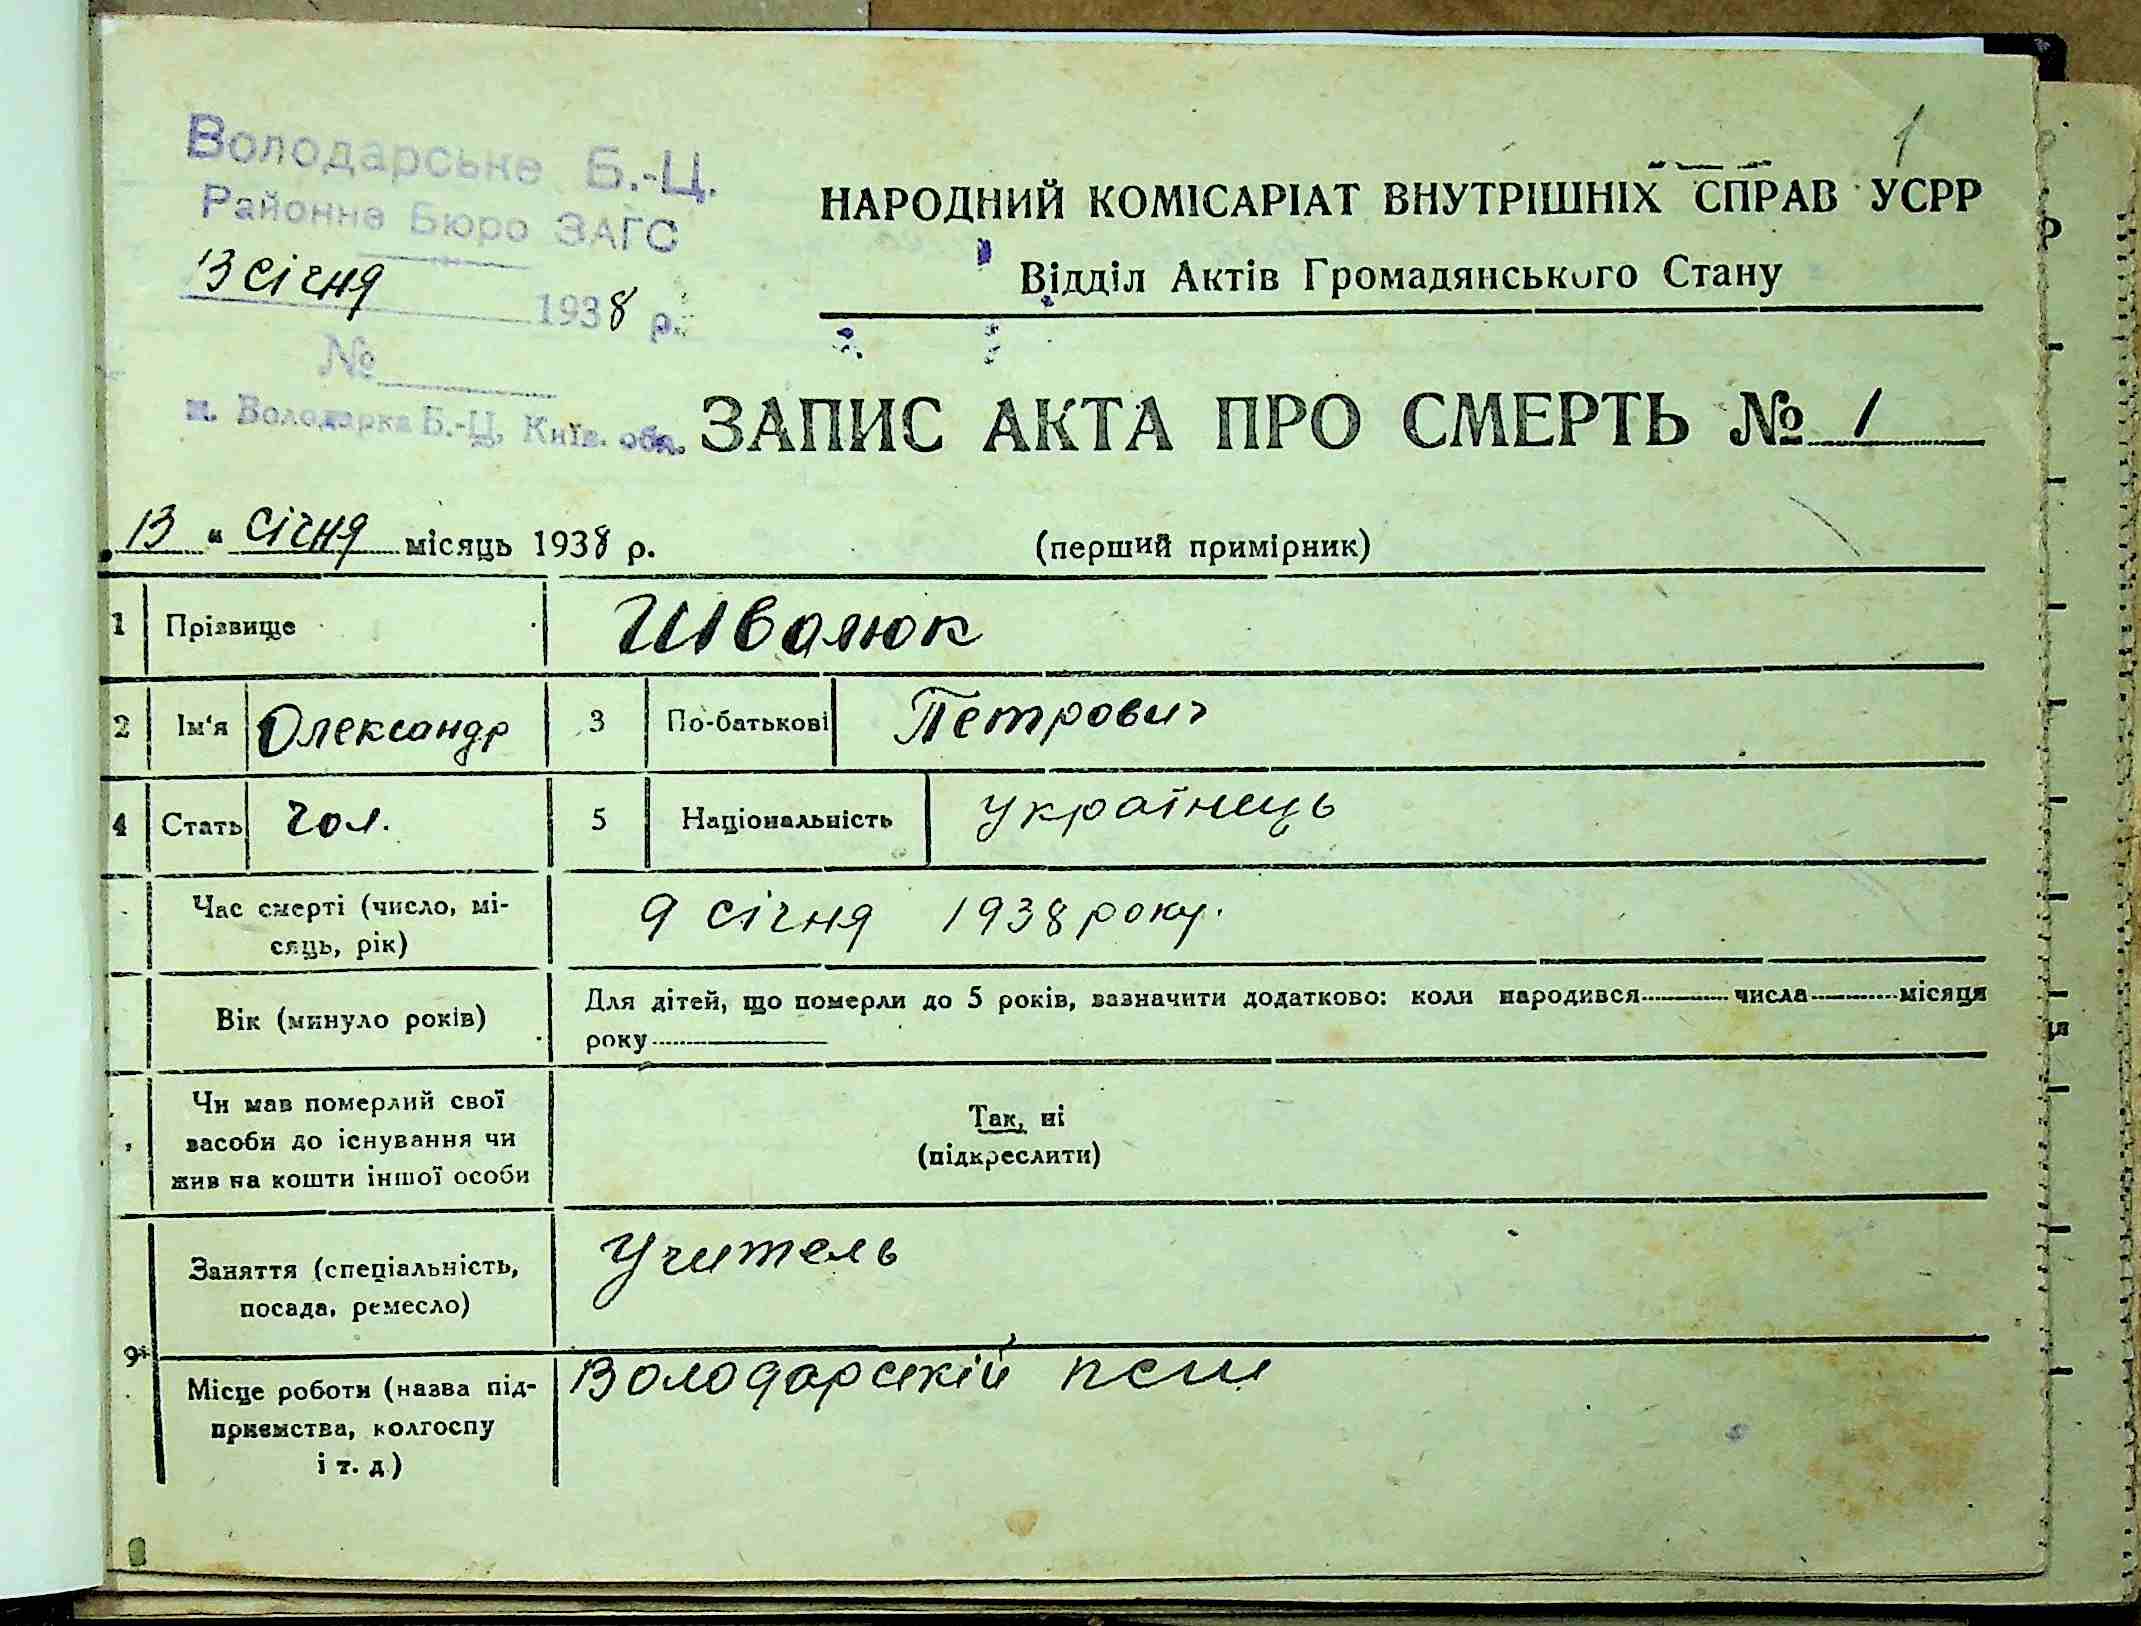 1
Володарське Б.-Ц.
Районне Бюро ЗАГС
13 січня 1938 р.
№
м. Володарка Б.-Ц. Київ. обл.
НАРОДНИЙ КОМІСАРІАТ ВНУТРІШНІХ СПРАВ УСРР
Відділ Актів Громадянського Стану
ЗАПИС АКТА ПРО СМЕРТЬ № 1
„13“ січня місяць 1938 р.
(перший примірник)
1 Прізвище Швалюк
2 Ім'я Олександр 3 По-батькові Петрович
4 Стать чол. 5 Національність українець
Час смерті (число, мі-
сяць, рік)
9 січня 1938 року.
Вік (минуло років)
Для дітей, що померли до 5 років, зазначити додатково: коли народився числа місяця
року
Чи мав померлий свої
засоби до існування чи
жив на кошти іншої особи
Так, ні
(підкреслити)
Заняття (спеціальність,
посада, ремесло)
Учитель
9
Місце роботи (назва під-
приємства, колгоспу
і т. д.)
Володарській